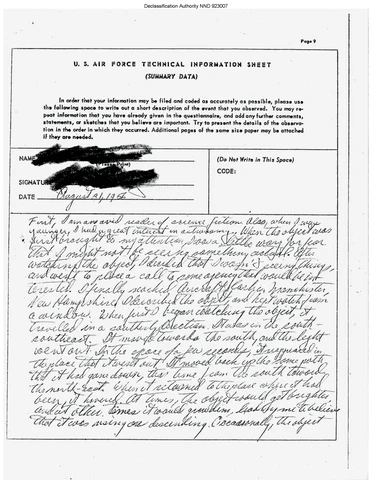 Declassification Authority NND 923007
Page 9
U. S. AIR FORCE TECHNICAL INFORMATION SHEET
(SUMMARY DATA)
In order that your information may be filed and coded as accurately as possible, please use
the following space to write out a short description of the event that you observed. You may re-
peat information that you have already given in the questionnaire, and add any further comments,
statements, or sketches that you believe are important. Try to present the details of the observa-
tion in the order in which they occurred. Additional pages of the same size paper may be attached
if they are needed.
NAME
(Do Not Write in This Space)
CODE:
SIGNATURE
DATE August 21,
First, I am an avid reader of science fiction. Also, when I was
younger, I had a great interest in astronomy. When the object was
first brought to my attention, I was a little wary for fear
that I might not be seeing something. After
watching the object, I decided that I wasn't seeing things,
and went to place a call to some agency that would be in-
terested. I finally reached Aircraft in Manchester,
New Hampshire. I described the object, and kept watch from
a window. When first I began watching the object, it
travelled in a southerly direction. It was in the south-
southeast. It moved towards the south, and the light
went out. In the space of a few seconds, it reappeared in
the place that it went out. It moved back up the same path
that it had gone down, this time from the south toward
the north-east. When it returned to the place where it had
been, it hovered. At times, the object would get brighter
and at other times it would grow dim, leading me to believe
that it was rising and descending. Occasionally, the object